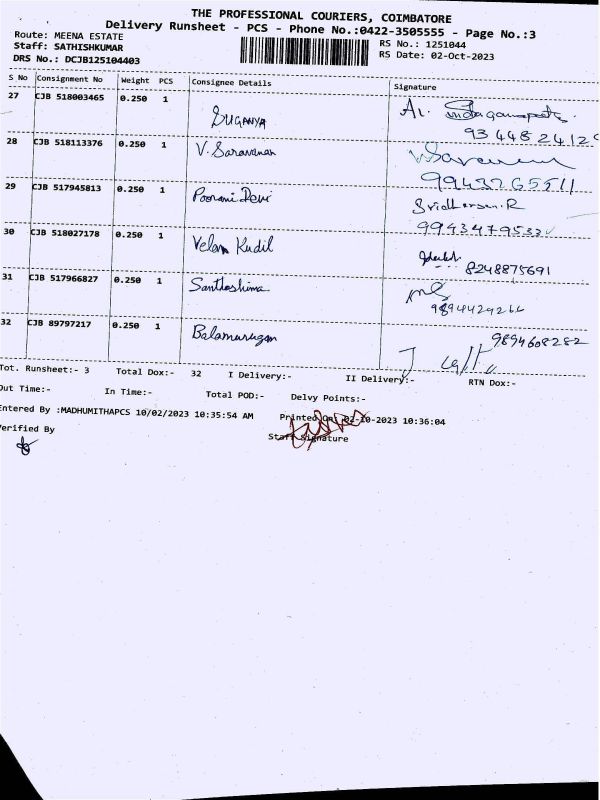 THE PROFESSIONAL COURIERS, COIMBATORE
Delivery Runsheet - PCS - Phone No.:0422-3505555 - Page No.:3
Route: MEENA ESTATE
RS No.: 1251044
Staff: SATHISHKUMAR
RS Date: 02-Oct-2023
DRS No.: DCJB125104403
S No Consignment No Weight PCS Consignee Details Signature
27 CJB 518003465 0.250 1 SUGANYA
93 448 2412
28 CJB 518113376 0.250 1 V. Saravanan
9943765511
29 CJB 517945813 0.250 1 Poorani Devi Sridharsan.R
9943479532
30 CJB 518027178 0.250 1 Velan Kudil
8248875691
31 CJB 517966827 0.250 1 Santhoshima
32 CJB 89797217 0.250 1 Balamurugan 9894608282
Tot. Runsheet:- 3 Total Dox:- 32 I Delivery:- II Delivery:- RTN Dox:-
Out Time:- In Time:- Total POD:- Delvy Points:-
Entered By :MADHUMITHAPCS 10/02/2023 10:35:54 AM Printed On: 02-10-2023 10:36:04
Verified By Staff Signature